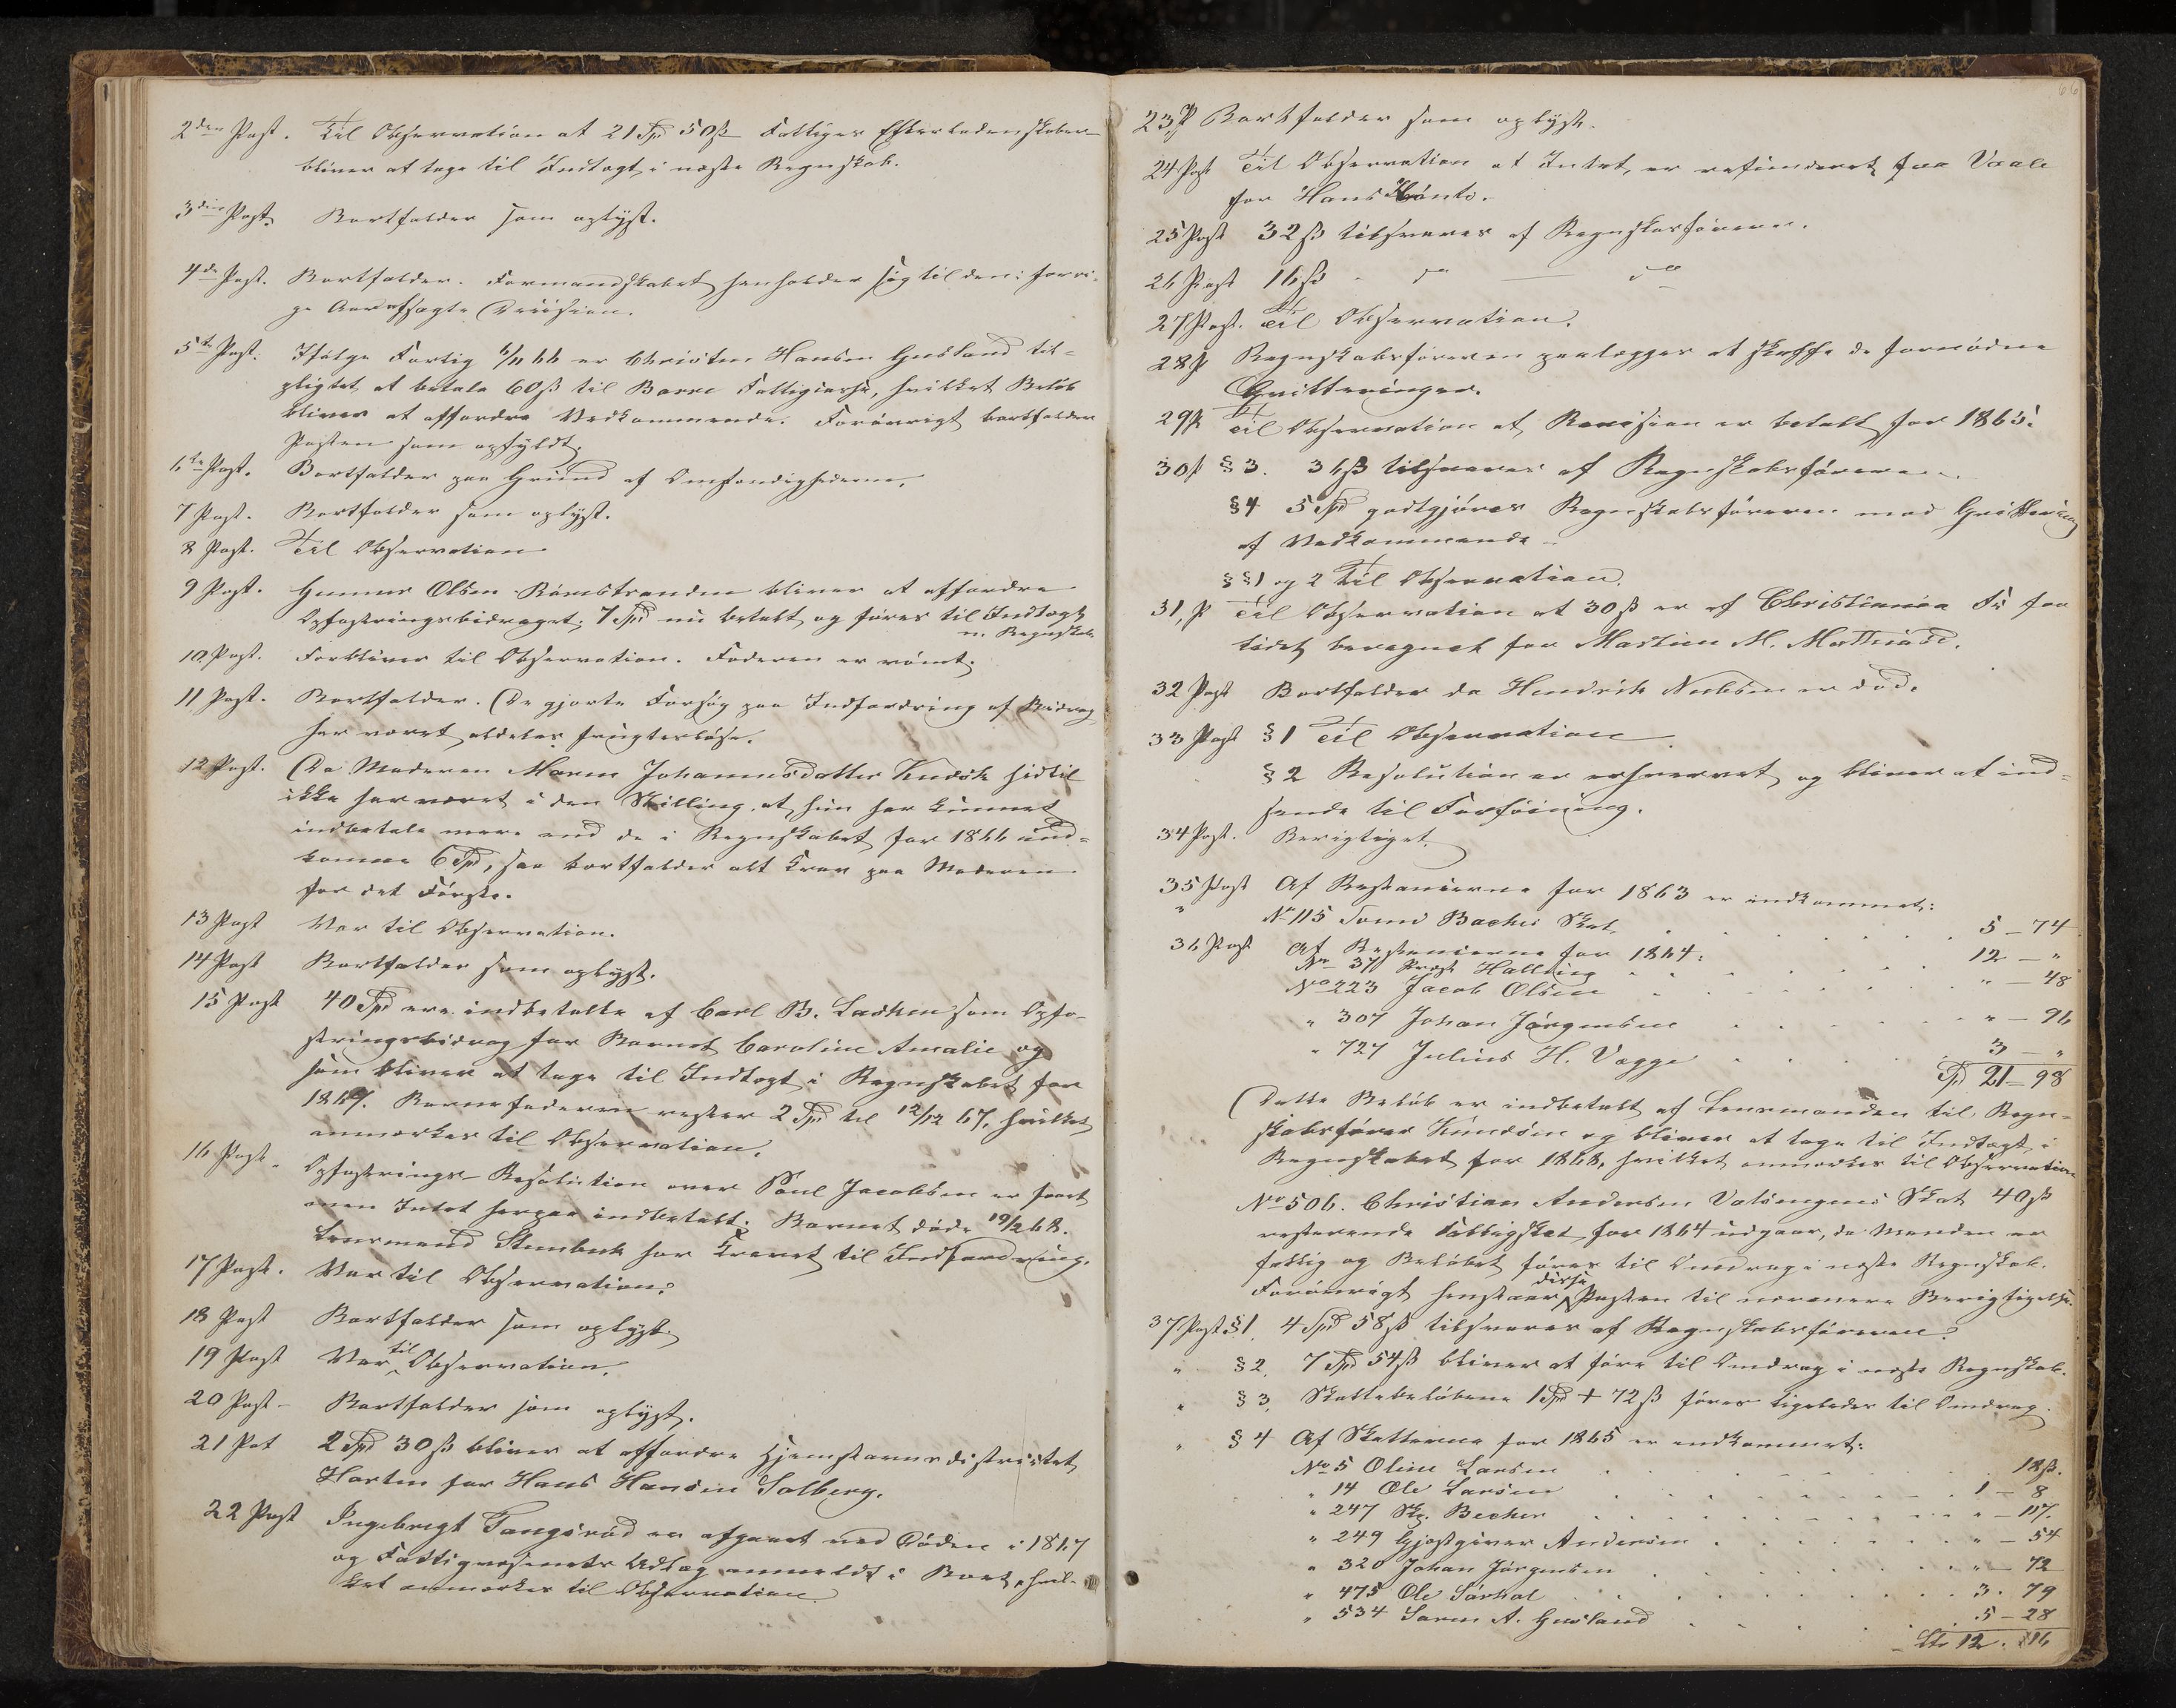 2den Post. Til Observation at 21 Spd 50 ß Fattiges Efterladenskaber
bliver at tage til Indtægt i næste Regnskab.
3die Post. Bortfalder som oplyst.
4de Post. Bortfalder. Formandskabet henholder sig til den i forri-
ge Aar afsagte Decision.
5te Post. Ifølge Forlig 6/11 66 er Christen Hansen Gusland til-
pligtet at betale 60 ß til Borre Fattigcasse, hvilket Beløb
bliver at affordre Vedkommende. Forøvrigt bortfalder
Posten som opfyldt.
6te Post. Bortfalder paa Grund af Omstændighederne.
7 Post. Bortfalder som oplyst.
8 Post. Til Observation
9 Post. Gunner Olsen Rørestranden bliver at affordre
Opfostringsbidraget; 7 Spd nu betalt og føres til Indtægt
n. Regnskab
10 Post. Forbliver til Observation. Faderen er rømt.
11 Post. Bortfalder. De gjorte Forsøg paa Indfordring af Bidrag
har været aldeles frugtesløse.
12 Post. Da Moderen Maren Johannesdatter hidtil
ikke har været i den Stilling, at hun har kunnet
indbetale mere end de i Regnskabet for 1866 ind-
komne 6 Spd, saa bortfalder alt Krav paa Moderen
for det Første.
13 Post Var til Observation.
14 Post Bortfalder som oplyst.
15 Post 40 Spd ere indbetalte af Carl B. Larsen som Opfo-
stringsbidrag for Barnet Caroline Amalie og
som bliver at tage til Indtægt i Regnskabet for
1867. Barnefaderen rester 2 Spd til 12/12 67, hvilket
anmærkes til Observation.
16 Post. Opfostrings-Resolution over Poul Jacobsen er
men Intet herpaa indbetalt. Barnet døde 19/2 68.
Lensmand Steenbuch har Kravet til Indfordring.
17 Post. Var til Observation.
18 Post Bortfalder som oplyst.
19 Post Var til Observation.
20 Post – Bortfalder som oplyst.
21 Pot 2 Spd 30 ß bliver at affordre Hjemstavnsdistriktet
Horten for Hans Hansen Solberg.
22 Post Ingebregt Tangsrød er afgaaet ved Døden i 1867
og Fattigvæsenets Udlæg anmeldt i Boet, hvil-
ket anmærkes til Observation.
23 P Bortfalder som oplyst.
24 Post Til Observation at Intet er refunderet fra Vaale
for Hans
25 Post 32 ß tilsvares af Regnskabsføreren.
26 Post 16 ß – do – do
27 Post. Til Observation.
28 P Regnskabsføreren paalægges at skaffe de fornødne
Qvitteringer.
29 P Til Observation at Revision er betalt for 1865.
30 P § 3. 36 ß tilsvares af Regnskabsføreren.
§ 4 5 Spd godtgjøres Regnskabsføreren mod Qvittering
af Vedkommende
§§ 1 og 2 Til Observation.
31, P Til Observation at 30 ß er af Christiania for
lidet beregnet for M.
32 Post Bortfalder da Hendrik Nielsen er død.
33 Post § 1 Til Observation
§ 2 Resolution er erhvervet og bliver at ind-
sende til Forføining.
34 Post. Berigtiget.
35 Post Af Restancerne for 1863 er indkommet:
" No 115 Bachis Skat . . . 5 – 74
36 Post Af Restancerne for 1864:
No 37 Prost Halling . . . 12 – "
No 223 Jacob Olsen . . . " – 48
" 307 Johan Jørgensen . . . " – 96
" 727 Julius H. Vegge . . . 3 – "
Spd 21 – 98
Dette Beløb er indbetalt af Lensmanden til Regn-
skabsfører Knudsen og bliver at tage til Indtægt i
Regnskabet for 1868, hvilket anmærkes til Observation
No 506. Christian Andersen Skat 40 ß
resterende Fattigskat for 1864 udgaar, da Manden er
fattig og Beløbet føres til Omdrag i næste Regnskab.
Forøvrigt henstaar disse Poster til nærmere Berigtigelse.
37 Post § 1. 4 Spd 58 ß tilsvares af Regnskabsføreren.
" § 2. 7 Spd 54 ß bliver at føre til Omdrag i næste Regnskab.
" § 3. Skattebeløbene 1 Spd + 72 ß føres ligeledes til Omdrag.
" § 4 Af Skatterne for 1865 er indkommet:
No 5 Oline Larsen . . . 18 ß.
" 14 Ole Larsen . . . 1 – 8
" 247 Becher . . . " – 117.
" 249 Gjæstgiver Andersen . . . " – 54
" 320 Johan Jørgensen . . . " – 72
" 475 Ole Sørhol . . . 3 . 79
" 534 Søren A. Gusland . . . 5 – 28
Ltr 12 . 16